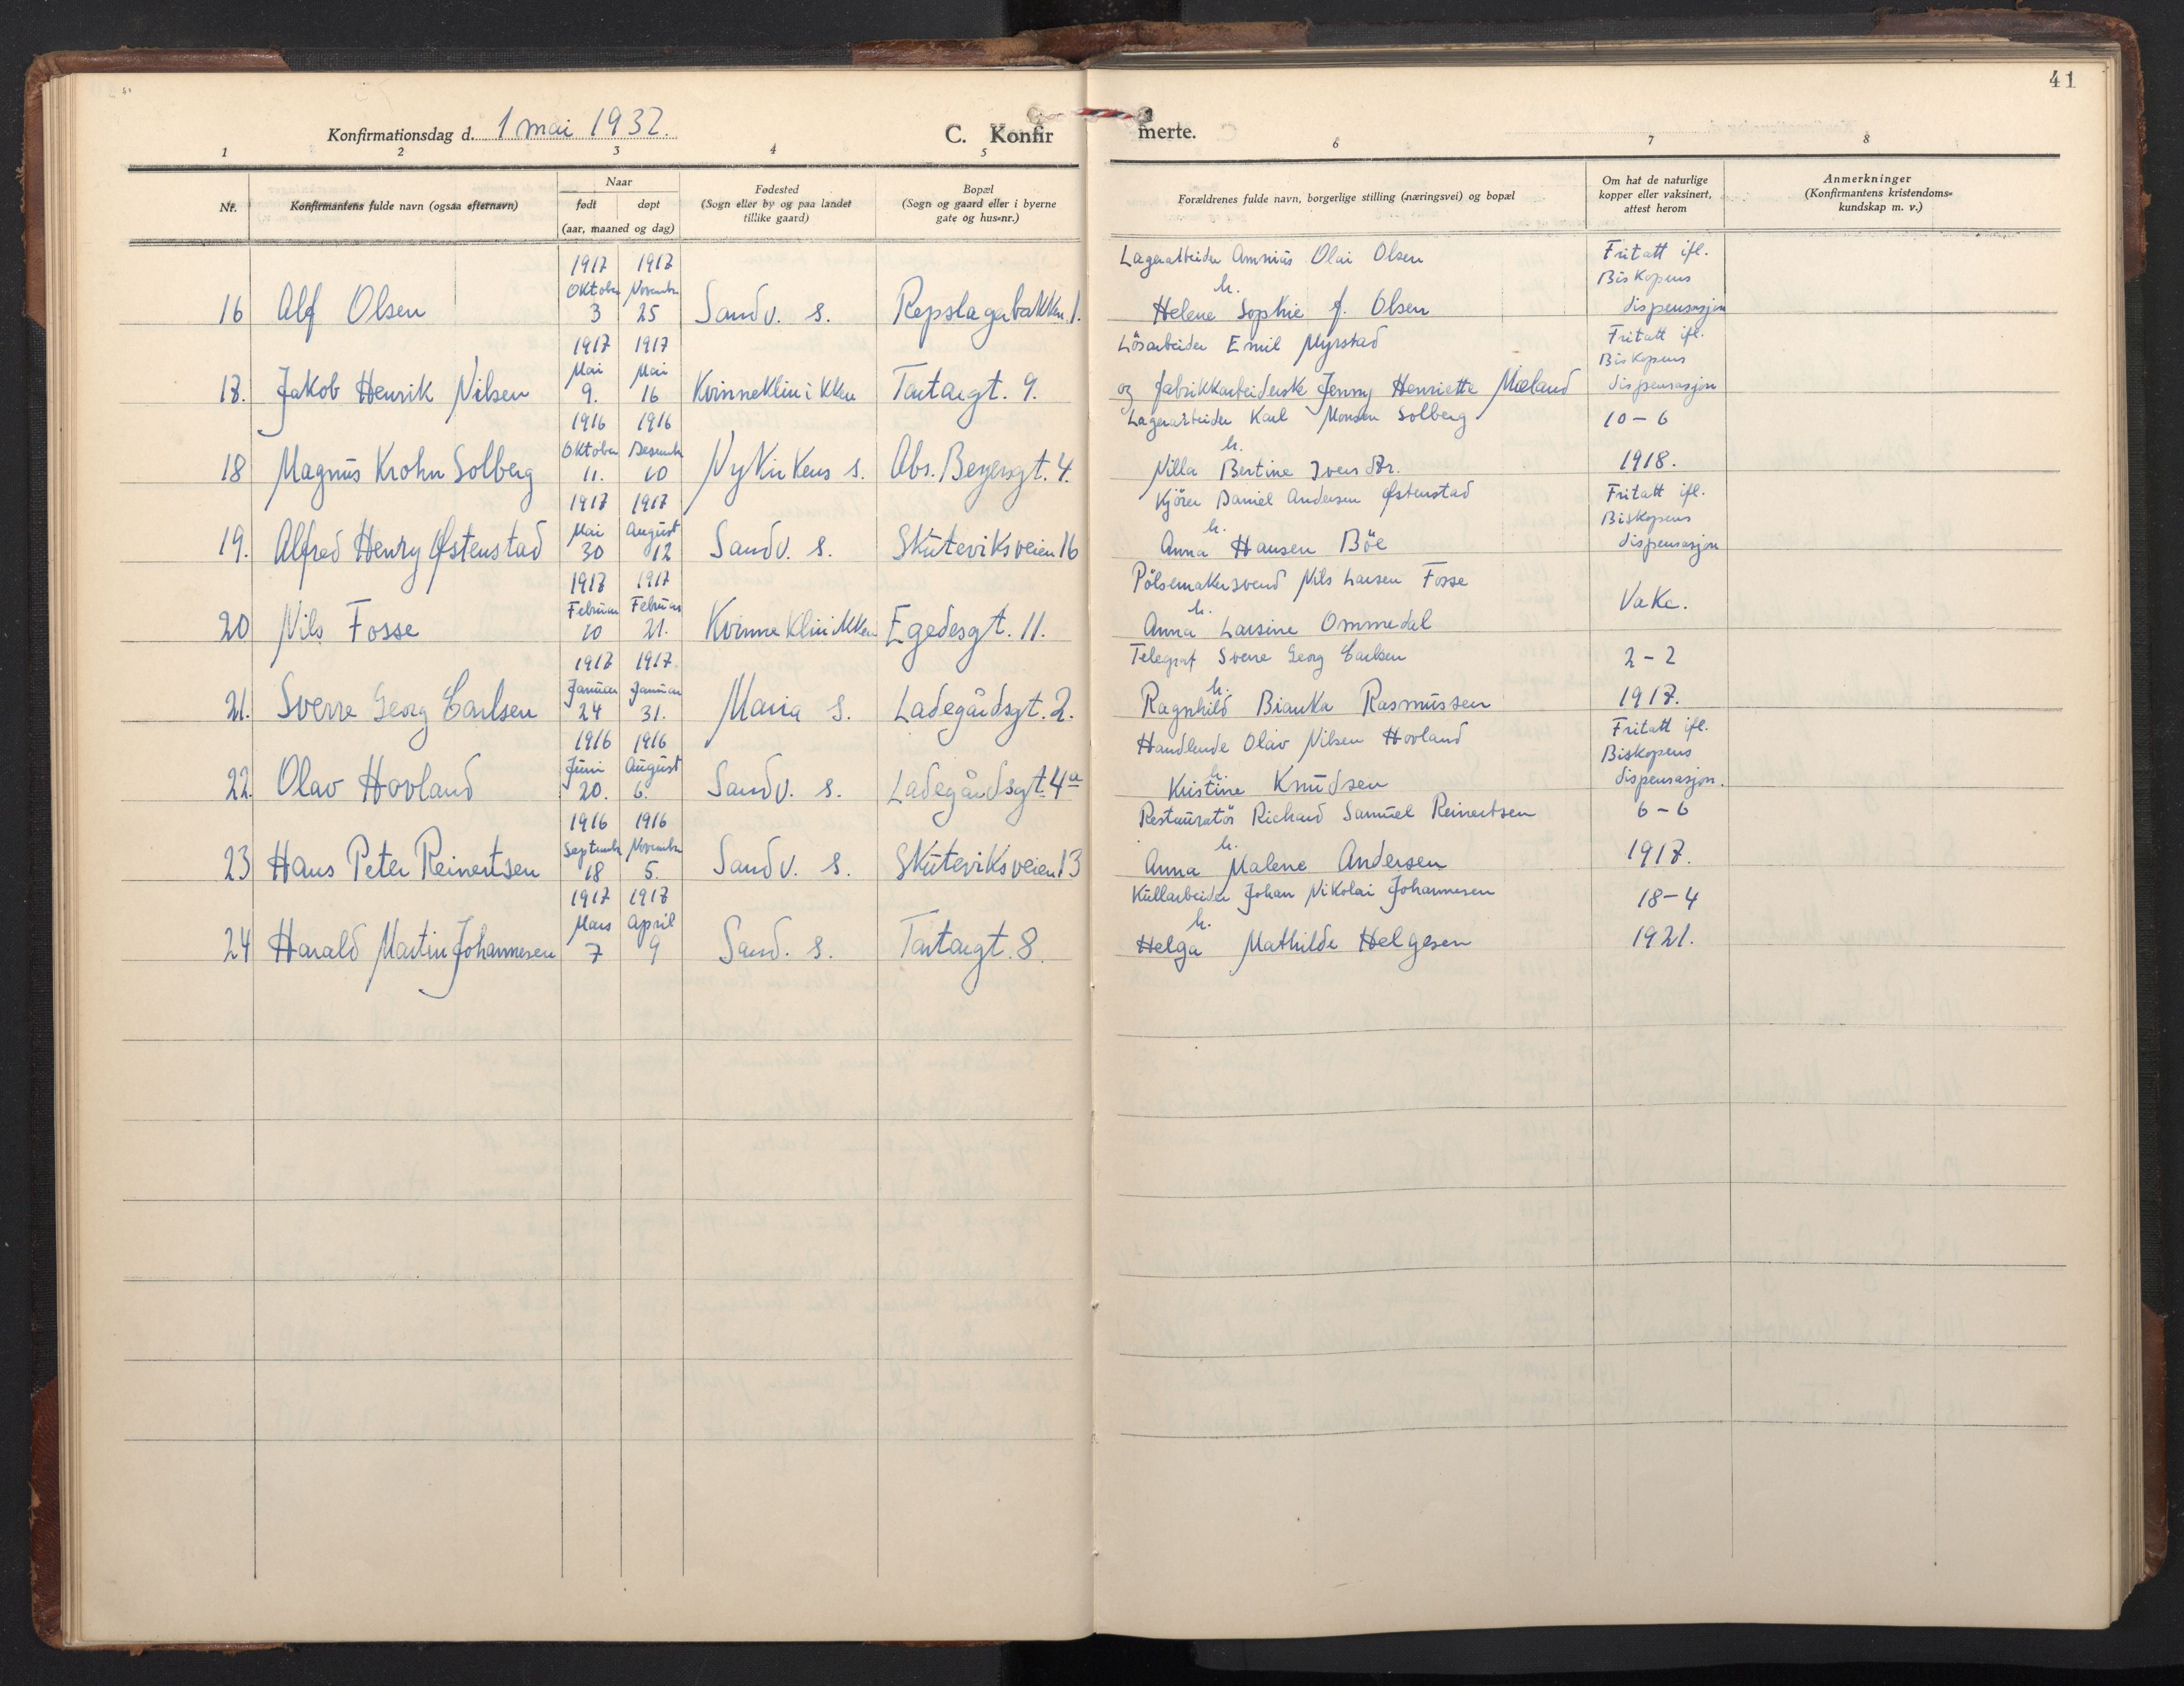 41
Konfirmationsdag d. 1 mai 1932.
C. Konfirmerte.
1 2 3 4 5 6 7 8
Nr.
Konfirmantens fulde navn (ogsaa efternavn)
Naar
født
døpt
(aar, maaned og dag)
Fødested
(Sogn eller by og paa landet
tillike gaard)
Bopæl
(Sogn og gaard eller i byerne
gate og hus=nr.)
Forældrenes fulde navn, borgerlige stilling (næringsvei) og bopæl
Om hat de naturlige
kopper eller vaksinert,
attest herom
Anmerkninger
(Konfirmantens kristendoms=
kundskap m. v.)
1917 1917 Lagerarbeider Olai Olsen Fritatt ifl.
Oktober November h. Biskopens
16 Alf Olsen 3 25 Sandv. s. Repslagerbakken 1. Helene Sophie f. Olsen dispensasjon
1917 1917 Lösarbeider Emil Myrstad Fritatt ifl.
Mai Mai Biskopens
17. Jakob Henrik Nilsen 9. 16 Kvinneklinikken Tartargt. 9. og fabrikkarbeiderske Jenny Henriette Mæland dispensasjon
1916 1916 Lagerarbeider Karl Monsen Solberg 10-6
Oktober Desember h.
18 Magnus Krohn Solberg 11. 10 Nykirkens s. Abs. Beyersgt. 4. Nilla Bertine Iversdtr. 1918.
1917 1917 Kjörer Daniel Andersen Østenstad Fritatt ifl.
Mai August h. Biskopens
19. Alfred Henry Østenstad 30 12 Sandv. s. Skuteviksveien 16 Anna Hansen Böe dispensasjon
1917 1917 Pölsemakersvend Nils Larsen Fosse
Februar Februar h. Vakc.
20 Nils Fosse 10 21. Kvinneklinikken Egedesgt. 11. Anna Larsine Ommedal
1917 1917. Telegraf Sverre Georg Carlsen 2-2
Januar Januar h.
21. Sverre Georg Carlsen 24 31. Maria s. Ladegårdsgt. 2. Ragnhild Bianka Rasmussen 1917.
1916 1916 Handlende Olav Nilsen Hovland Fritatt ifl.
Juni August h. Biskopens
22. Olav Hovland 20. 6. Sandv. s. Ladegårdsgt. 4a Kristine Knudsen dispensasjon.
1916 1916 Restauratör Richard Samuel Reinertsen 6-6
September November h.
23 Hans Peter Reinertsen 18 5. Sandv. s. Skuteviksveien 13 Anna Malene Andersen 1917.
1917 1917 Kullarbeider Johan Nikolai Johannesen 18-4
Mars April h.
24 Harald Martin Johannesen 7 9 Sand. s. Tartargt. 8. Helga Mathilde Helgesen 1921.